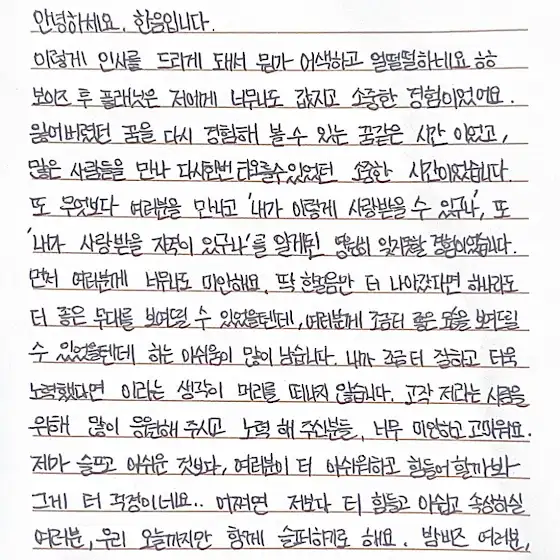 안녕하세요. 한음입니다.
이렇게 인사를 드리게 돼서 뭔가 어색하고 얼떨떨하네요 ㅎㅎ
보이즈 투 플래닛은 저에게 너무나도 값지고 소중한 경험이었어요.
잃어버렸던 꿈을 다시 경험해 볼 수 있는 꿈같은 시간 이었고,
많은 사람들을 만나 다시한번 타오를수있었던 소중한 시간이었습니다.
또 무엇보다 여러분을 만나고 '내가 이렇게 사랑받을 수 있구나', 또
'내가 사랑받을 자격이 있구나'를 알게된 영원히 잊지못할 경험이었습니다.
먼저 여러분께 너무나도 미안해요. 딱 한걸음만 더 나아갔다면 하나라도
더 좋은 무대를 보여드릴 수 있었을텐데, 여러분께 조금더 좋은 모습을 보여드릴
수 있었을텐데 하는 아쉬움이 많이 남습니다. 내가 조금 더 잘하고 더욱
노력했다면 이라는 생각이 머리를 떠나지 않습니다. 고작 저라는 사람을
위해 많이 응원해 주시고 노력 해 주신분들, 너무 미안하고 고마워요.
제가 슬프고 아쉬운 것보다, 여러분이 더 아쉬워하고 힘들어 할까봐
그게 더 걱정이네요.. 어쩌면 저보다 더 힘들고 아쉽고 속상하실
여러분, 우리 오늘까지만 함께 슬퍼하기로 해요. 밤비즈 여러분,